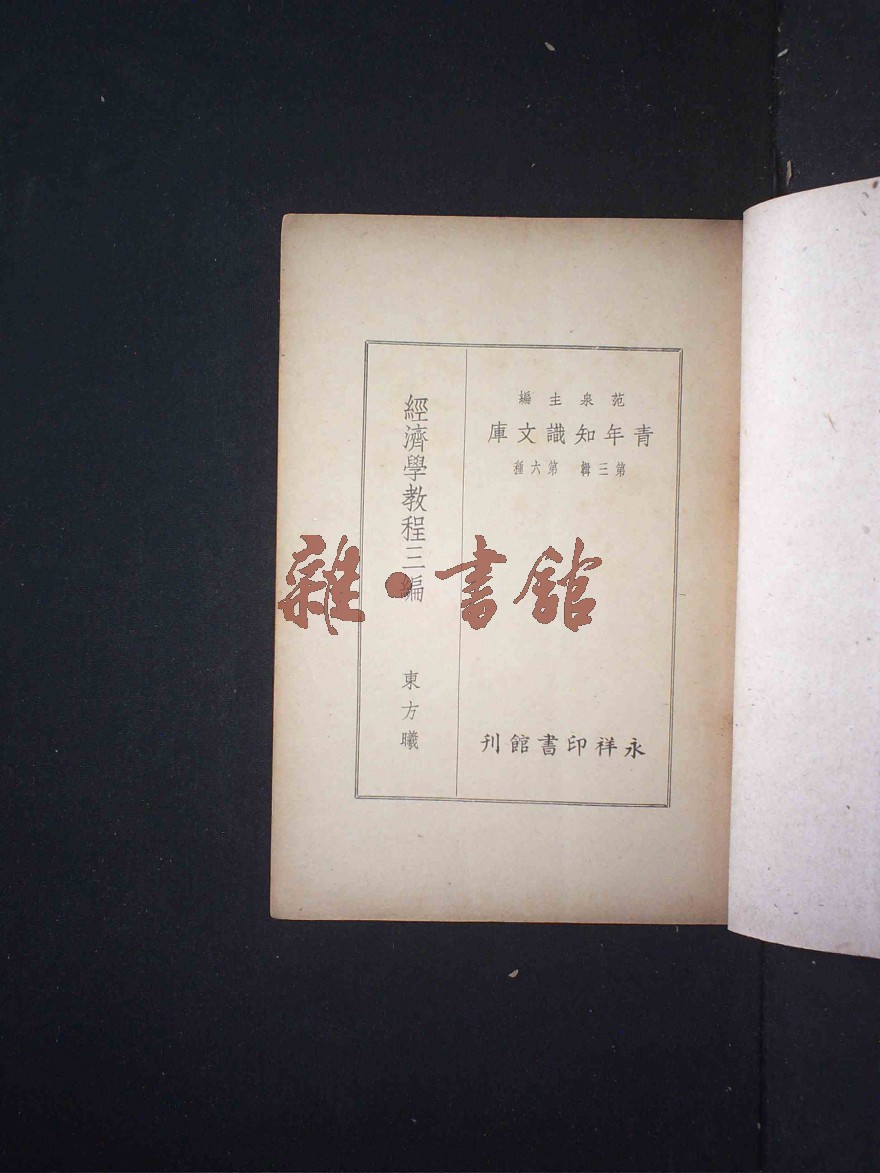 范泉主編
青年知識文庫
第三輯 第六種
永祥印書館刊
經濟學教程三編
東方曦
雜·書館